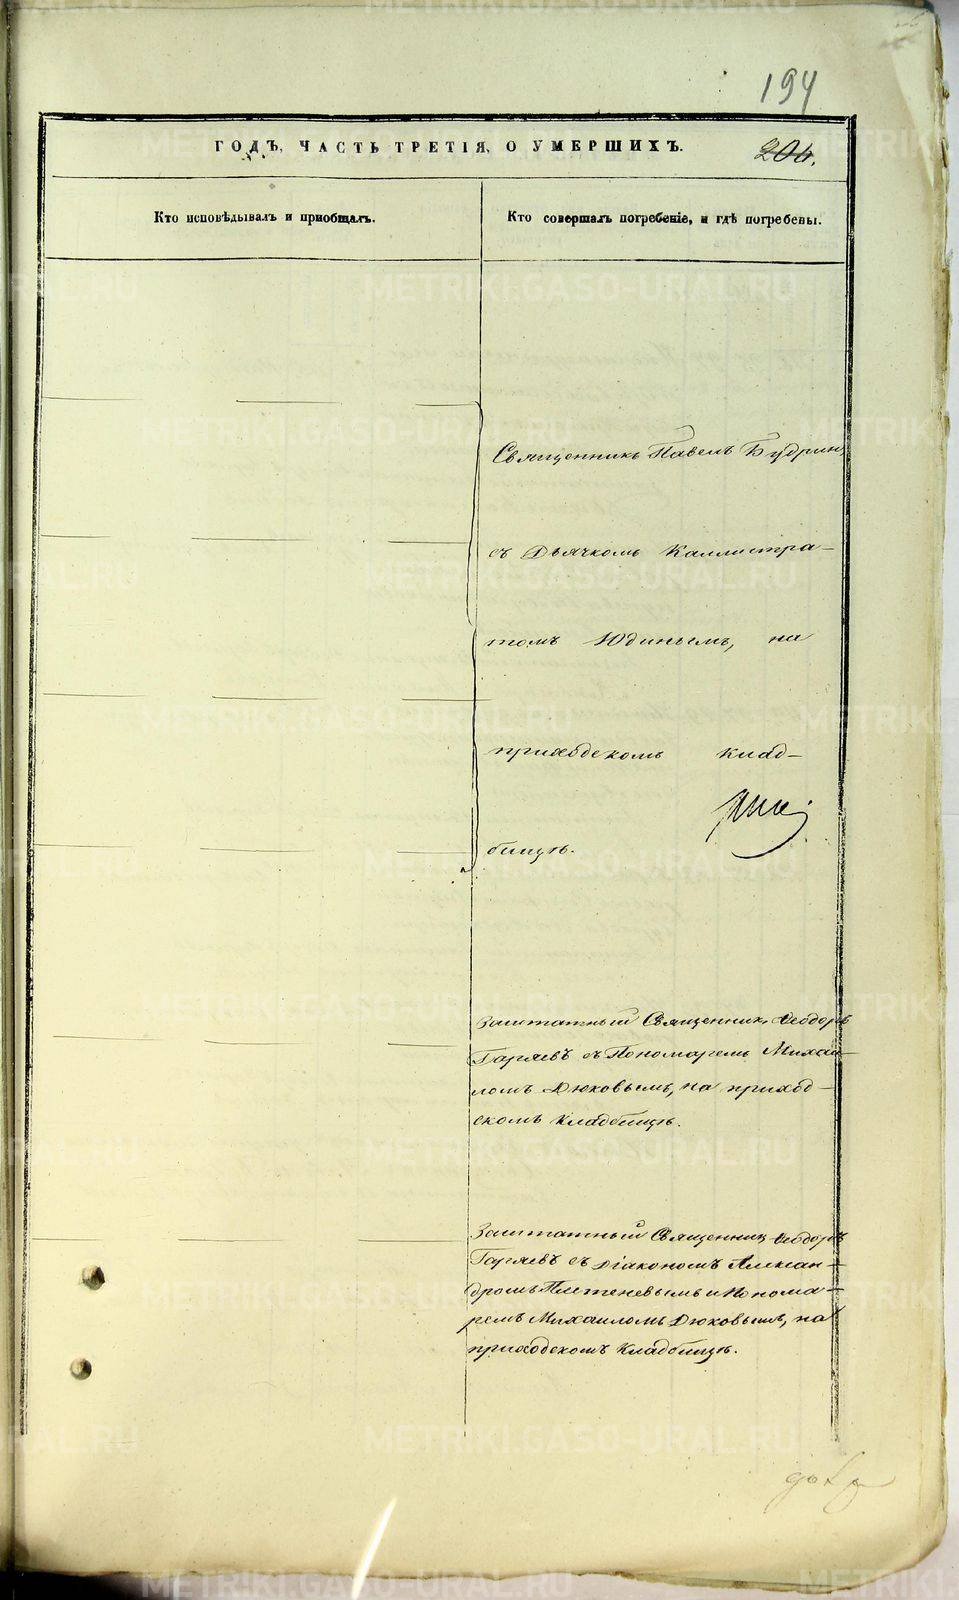 194
ГОДЪ, ЧАСТЬ ТРЕТІЯ, О УМЕРШИХЪ.
206.
Кто исповѣдывалъ и пріобщалъ.
Кто совершалъ погребеніе, и гдѣ погребены.
Священникъ Павелъ Будринъ
съ Дьячкомъ Каллистра-
томъ Юдинымъ, на
приходскомъ клад-
бищѣ.
Заштатный Священникъ Ѳеодоръ
Гаряевъ съ Пономаремъ Михаи-
ломъ Дюковымъ, на приход-
скомъ кладбищѣ.
Заштатный Священникъ Ѳеодоръ
Гаряевъ съ Діакономъ Алексан-
дромъ Плетеневымъ и Понома-
ремъ Михаиломъ Дюковымъ, на
приходскомъ кладбищѣ.
METRIKI.GASO-URAL.RU